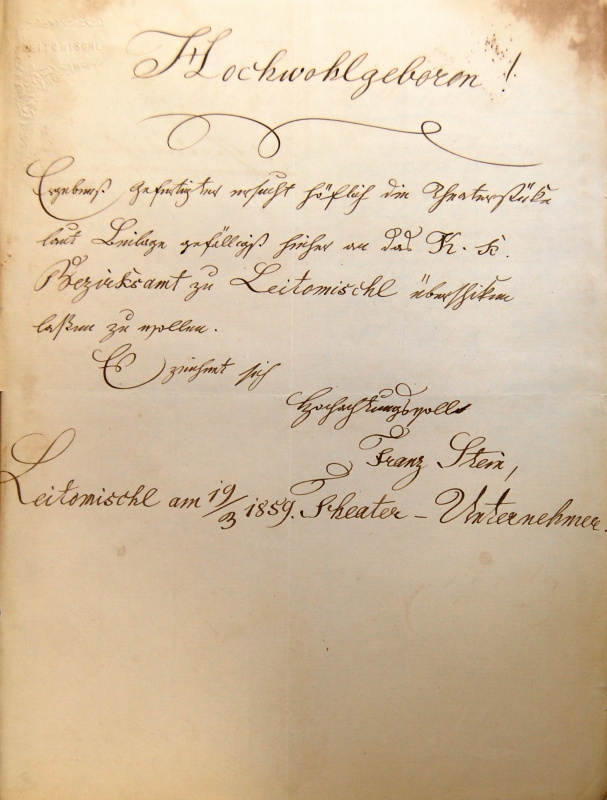 LEITOMISCHL
Hochwohlgeboren!
Ergebenst Gefertigter ersucht höflich die Theaterstücke
laut Beilage gefälligst hieher an das K. k.
Bezirksamt zu Leitomischl überschiken
laßen zu wollen.
Es zeichnet sich
Hochachtungsvoll
Franz Stein,
Leitomischl am 19/3 1859. Theater - Unternehmer.